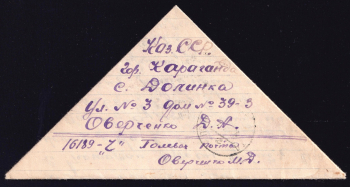 Каз. ССР.
гор. Караганда
с. Долинка
Ул. № 3 дом № 39-3
Оверченко Д. А.
16189-"Z" Полевая почта
Оверченко М. Д.